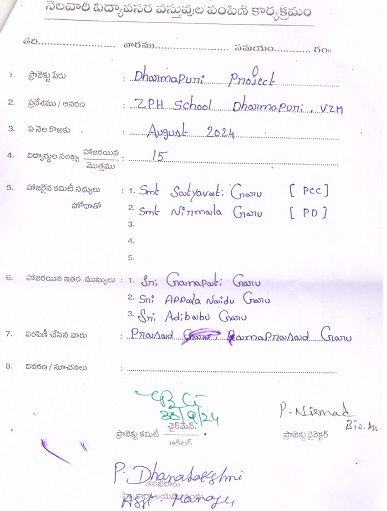 నెలవారీ విద్యావసర వస్తువుల పంపిణీ కార్యక్రమం
తేది.................. వారము.................. సమయం............ గం॥
1. ప్రాజెక్టు పేరు : Dharmapuri Project
2. ప్రదేశము / ఆవరణ : ZPH School Dharmapuri, VZM
3. ఏ నెల కొఱకు : August 2024
4. విద్యార్థుల సంఖ్య హాజరయిన / మొత్తము : 15
5. హాజరైన కమిటీ సభ్యులు : 1. Smt Satyavati Garu [PCC]
హోదాతో 2. Smt Nirmala Garu [PD]
3.
4.
5.
6. హాజరయిన ఇతర ముఖ్యులు : 1. Sri Ganapati Garu
2. Sri Appala Naidu Garu
3. Sri Adibabu Garu
7. పంపిణీ చేసిన వారు : Prasad RamaPrasad Garu
8. వివరణ / సూచనలు :
28/9/24
ప్రాజెక్టు కమిటీ ఛైర్మన్ / ఆడిటర్
P. Nirmala
ప్రాజెక్టు డైరెక్టర్
P. Dhanalakshmi
Asst. Manager